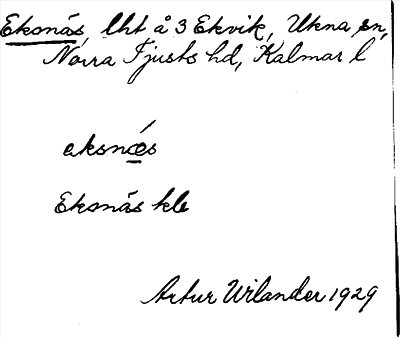 Eksnäs, lht å 3 Ekvik, Ukna sn,
Norra Tjusts hd, Kalmar l
eksnǽs
Eksnäs kle
Artur Wilander 1929